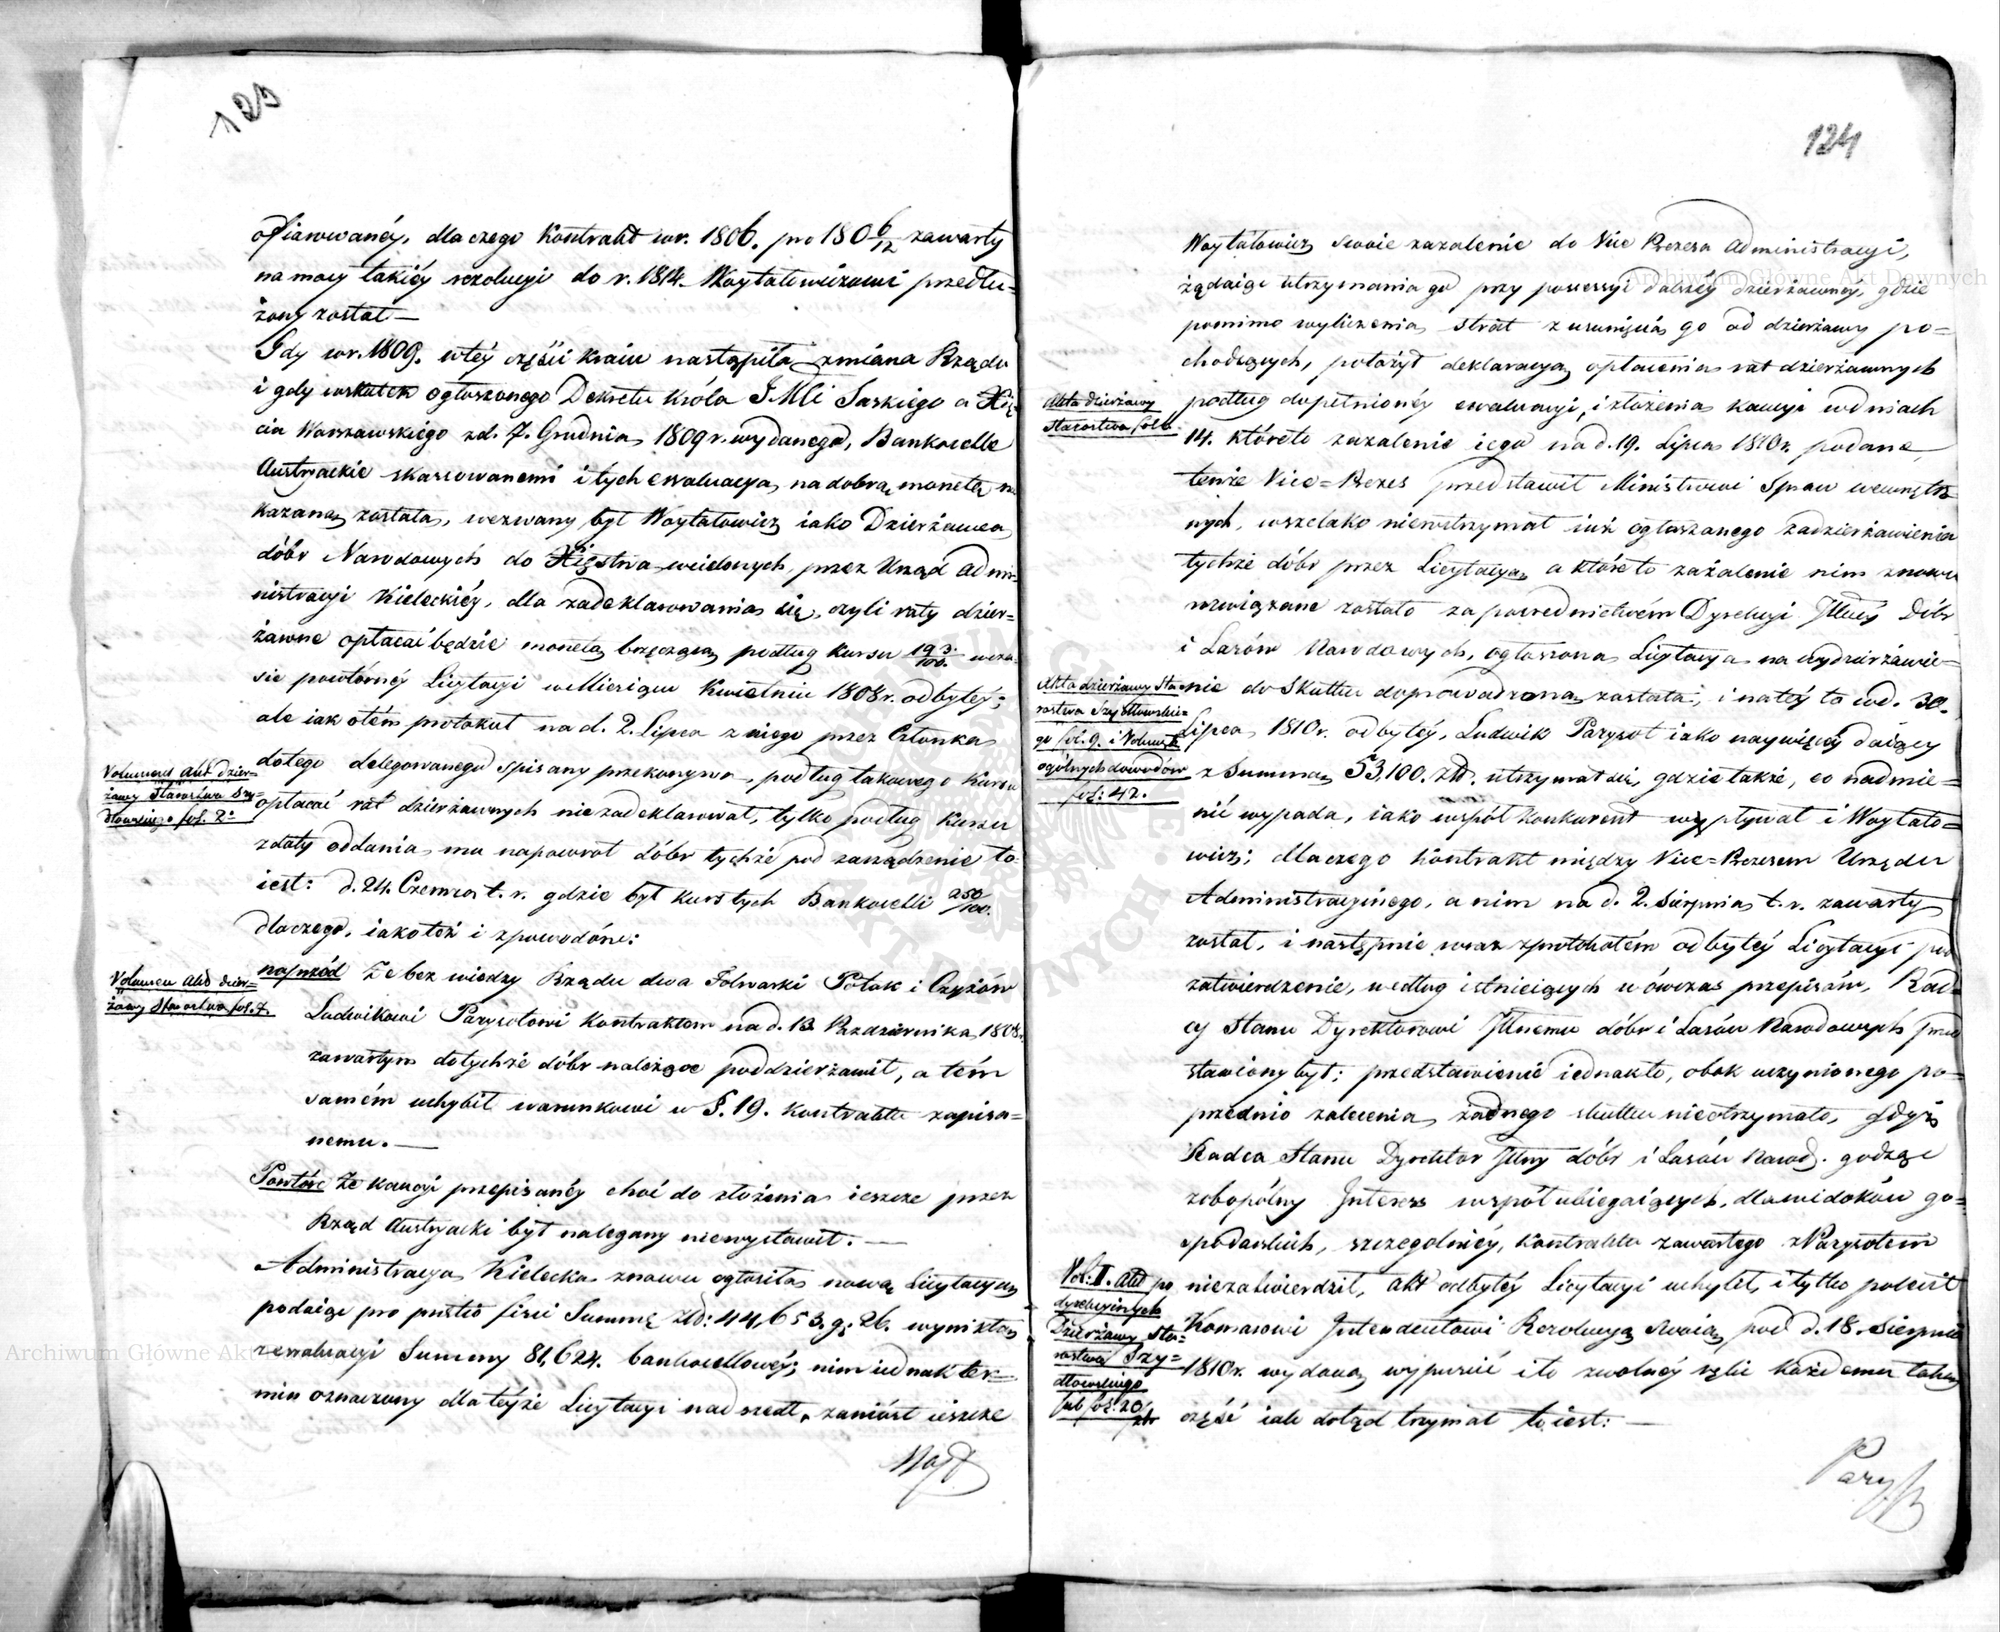 123
ofiarowanéy, dlaczego Kontrakt w r. 1806. pro 180 6/12 zawarty
na mocy takiéy rezolucyi do r. 1814. Woytałowiczowi przedłu=
żony został —
Gdy w r. 1809. w téy części kraiu nastąpiła zmiana Rządu
i gdy wskutek ogłoszonego Dekretu Króla J Mci Saskiego a Xię=
cia Warszawskiego z d. 7. Grudnia 1809 r. wydanego, Bankocetle
Austryackie skassowanemi i tych ewaluacya na dobrą monetę na
kazaną została, wezwany był Woytałowicz iako Dzierżawca
dóbr Narodowych do Xięstwa wcielonych, przez Urząd Admi=
nistracyi Kieleckiéy, dla zadeklarowania się, czyli raty dzier=
żawne opłacać będzie monetą brzęczącą podług kursu 193/100. w cza=
sie powtórnéy Licytacyi w Miesiącu Kwietniu 1808 r. odbytéy;
ale iak o tém protokuł na d. 2. Lipca z niego przez Członka
do tego delegowanego spisany przekonywa, podług takowego Kursu
Volumen akt dzier=
żawy Starostwa Szy=
dłowskiego fol. 2.
opłacać rat dzierżawnych niezadeklarował, tylko podług Kursu
z daty oddania mu napowrot dóbr tychże pod zarządzenie to
iest: d. 24. Czerwca t. r. gdzie był kurs tych Bankocetli 250/100.
dlaczego, iako też i z powodów:
Volumen akt dzier=
żawy Starostwa fol. 7.
naprzód Że bez wiedzy Rządu dwa Folwarki Potok i Czyżów
Ludwikowi Parysotowi Kontraktem na d. 13 Października 1808 r.
zawartym do tychże dóbr należące poddzierżawił, a tém
samém uchybił warunkowi w §. 19. kontraktu zapisa=
nemu. —
Powtóre Że kaucyi przepisanéy choć do złożenia ieszcze przez
Rząd Austryacki był nalegany niewystawił. —
Administracya Kielecka znowu ogłosiła nową Licytacyą
podaiąc pro pretio fisci Summę Złt: 44,653. g: 26. wynikłą
z ewaluacyi Summy 81,624. bankocetlowéy; nim iednak ter=
min oznaczony dla téyże Licytacyi nadszedł, zaniósł ieszcze
124
Woytałowicz swoie zażalenie do Vice Prezesa Administracyi,
żądaiąc utrzymania go przy possessyi dalszéy dzierżawnéy, gdzie
pomimo wyliczenia strat z usunięcia go od dzierżawy po=
chodzących, położył deklaracyą opłacenia rat dzierżawnych
Akta dzierżawy
Starostwa fol. 6.
podług dopełnionéy ewaluacyi, i złożenia kaucyi w dniach
14. które to zażalenie iego na d. 19. Lipca 1810 r. podane
tenże Vice=Prezes przedstawił Ministrowi Spraw wewnętrz=
nych, wszelako niewstrzymał iuż ogłoszonego zadzierżawienia
tychże dóbr przez Licytacyą a które to zażalenie nim znowu
rozwiązane zostało za pośrednictwém Dyrekcyi Jlnéy Dóbr
i Lasów Narodowych, ogłoszona Licytacya na wydzierżawie=
Akta dzierżawy Sta=
rostwa Szydłowskie=
go fol. 9. i Volumen
ogólnych dowodów
fol: 42.
nie do Skutku doprowadzona została, i na téy to w d. 30.
Lipca 1810 r. odbytéy, Ludwik Parysot iako naywięcéy daiący
z Summą 53,100. złt. utrzymał się, gdzie także, co nadmie=
nić wypada, iako współ konkurent wypływał i Woytało=
wicz; dlaczego kontrakt między Vice=Prezesem Urzędu
Administracyinego, a nim na d. 2. Sierpnia t. r. zawarty
został, i następnie wraz z protokołém odbytéy Licytacyi pod
zatwierdzenie, według istnieiących wówczas przepisów, Rad=
cy Stanu Dyrektorowi Jlnemu dóbr i Lasów Narodowych przed
stawiony był; przedstawienie iednak to, obok uczynionego po=
przednio zalecenia żadnego skutku nieotrzymało, gdyż
Radca Stanu Dyrektor Jlny dóbr i Lasów Narod. godząc
zobopólny Interes współubiegaiących, dla widoków go=
spodarskich, szczególniéy, kontraktu zawartego z Parysotem
Vol: II. akt po
dyrekcyinych
Dzierżawy Sta=
rostwa Szy=
dłowskiego
sub fol: 20.
niezatwierdził, akt odbytéy Licytacyi uchylił, i tylko polecił
Komarowi Intendentowi Rezolucyą swoią pod d. 18. Sierpnia
1810 r. wydaną wypuścić i to z wolnéy ręki każdemu taką
część iak dotąd trzymał to iest: —
Pary